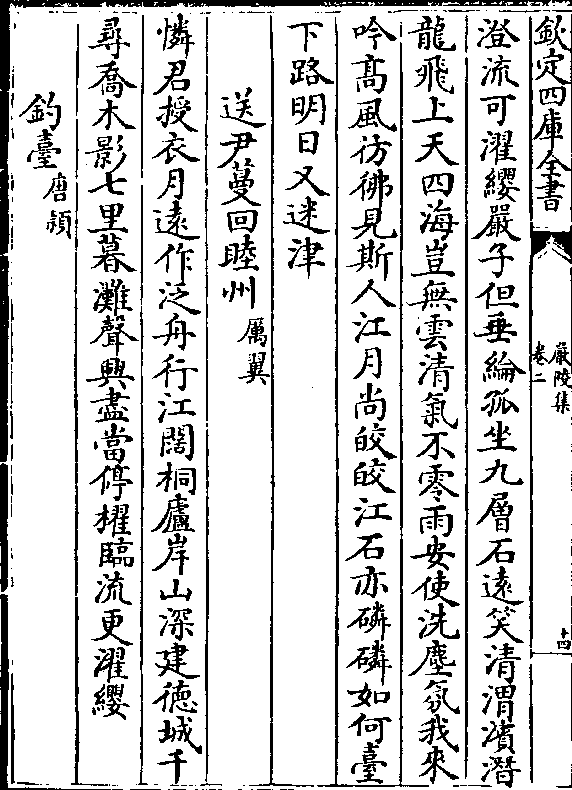 欽定四庫全書
嚴陵集
卷二
十四
澄流可濯纓嚴子但垂綸孤坐九層石遠笑清渭濱潛
龍飛上天四海豈無雲清氣不零雨安使洗塵氛我來
吟髙風彷彿見斯人江月尚皎皎江石亦磷磷如何臺
下路明日又迷津
送尹蔓回睦州 厲翼
憐君授衣月遠作泛舟行江闊桐廬岸山深建德城千
尋喬木影七里暮灘聲興盡當停櫂臨流更濯纓
釣臺 唐頴